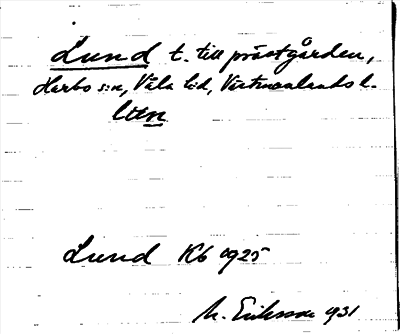 Lund t. till prästgården,
Harbo s:n, Våla hd, Västmanlands l.
lttn
Lund Kb 1925
M. Eriksson 1931